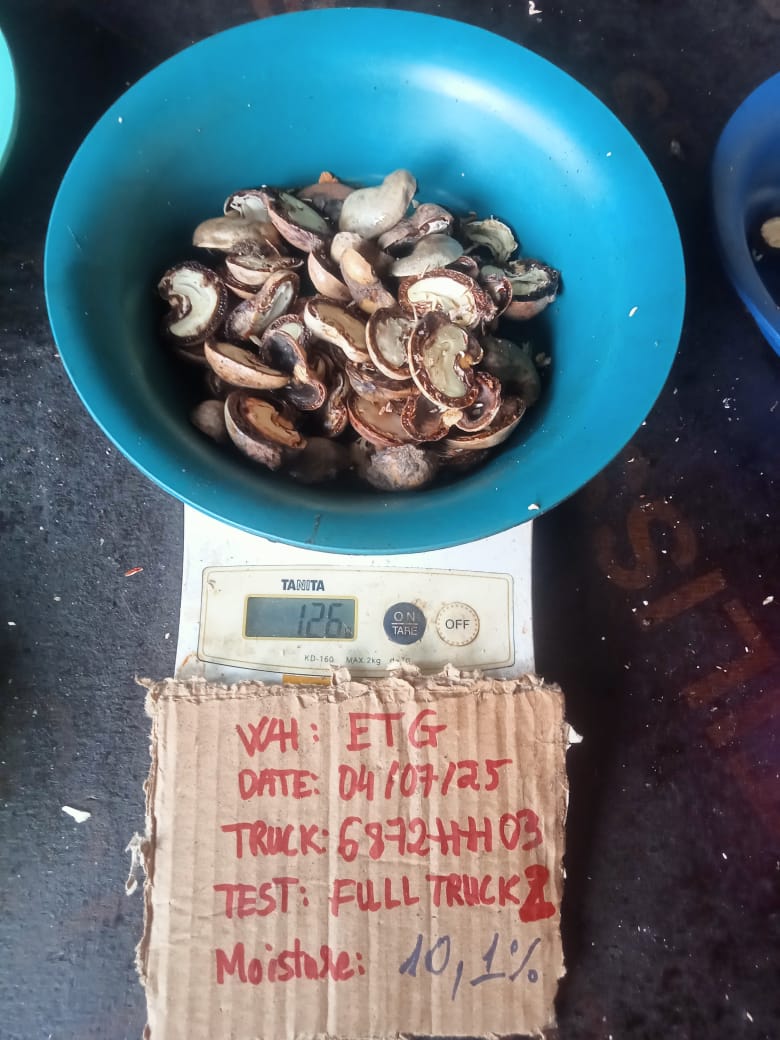 TANITA
126
ON
TARE
OFF
KD-160 MAX.2kg d=1g
WH: ETG
DATE: 04/07/25
TRUCK: 6872HH03
TEST: FULL TRUCK 2
Moisture: 10,1%